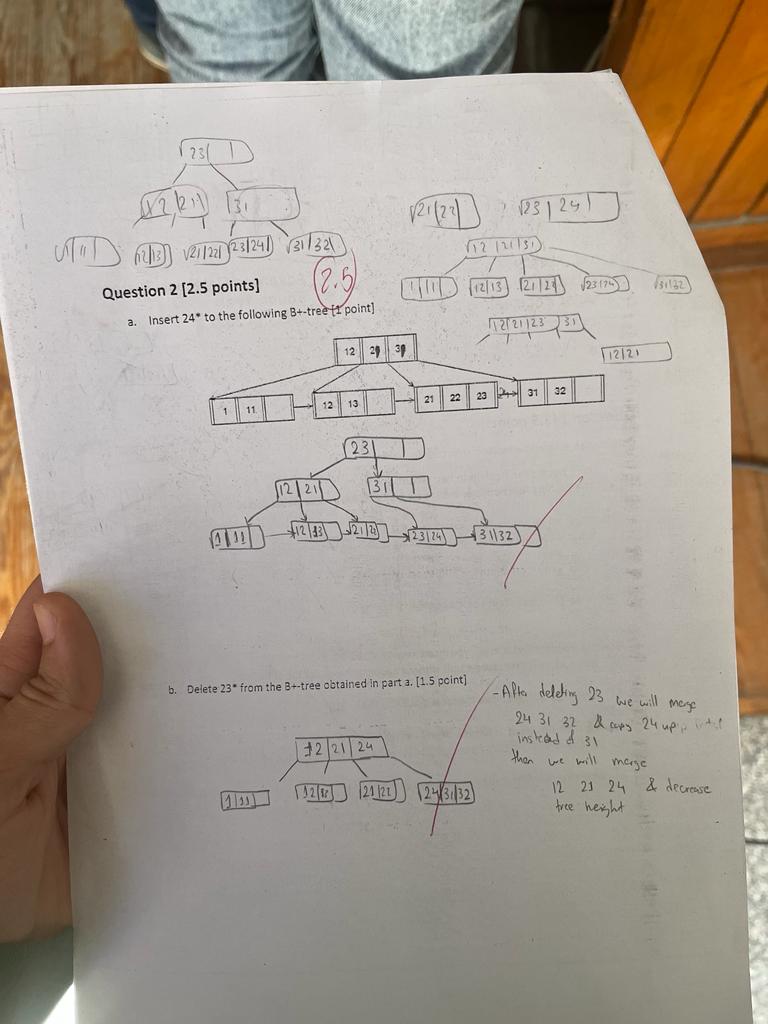 23
12 21
31
1 11
12 13
21 22
23 24
31 32
21 22
23 24
12 21 31
1 11
12 13
21 22
23 24
31 32
12 21 23 31
12 21
2.5
Question 2 [2.5 points]
a. Insert 24* to the following B+-tree [1 point]
12 21 31
1 11
12 13
21 22 23 24
31 32
23
12 21
31
1 11
12 13
21 22
23 24
31 32
b. Delete 23* from the B+-tree obtained in part a. [1.5 point]
12 21 24
1 11
12 13
21 22
24 31 32
- After deleting 23 we will merge
24 31 32 & copy 24 up
instead of 31
then we will merge
12 21 24 & decrease
tree height